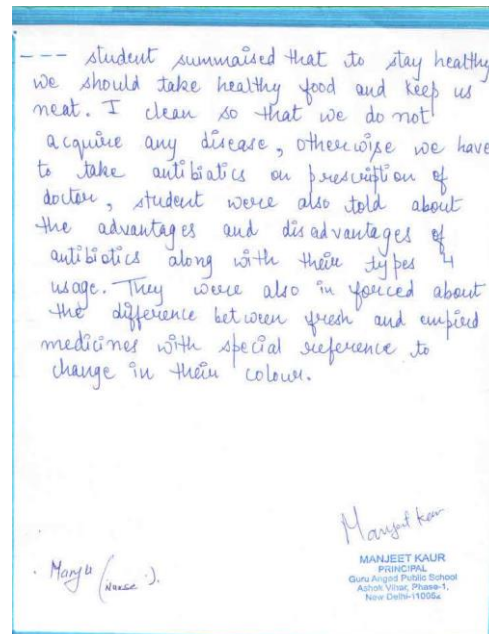 --- student summaised that to stay healthy
we should take healthy food and keep us
neat. I clean so that we do not
acquire any disease, otherwise we have
to take antibiatics on prescription of
doctor, student were also told about
the advantages and disadvantages of
antibiotics along with their types 4
usage. They were also in forced about
the difference between fresh and expired
medicines with special reference to
change in their colour.
Manjeet Kaur
MANJEET KAUR
PRINCIPAL
Guru Angad Public School
Ashok Vihar, Phase-1,
New Delhi-11005
Manju (Nurse).